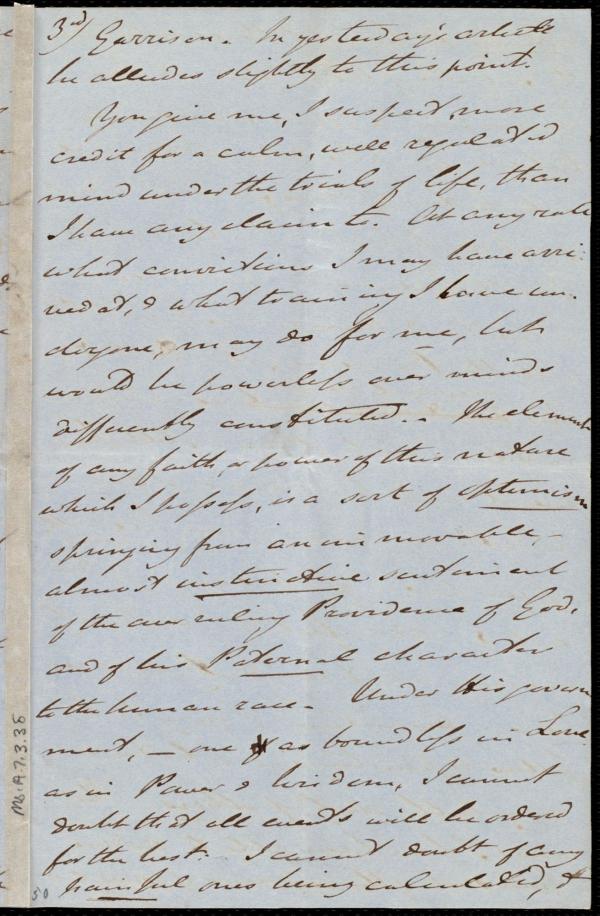 3rd Garrison. In yesterday's article
he alludes slightly to this point.
You give me, I suspect, more
credit for a calm, well regulated
mind under the trials of life, than
I have any claim to. At any rate
what convictions I may have arri-
ved at, & what training I have un-
dergone, may do for me, but
would be powerless over minds
differently constituted. - The element
of any faith, or power of this nature
which I possess, is a sort of optimism
springing from an immovable, -
almost instinctive sentiment
of the over ruling Providence of God,
and of his Paternal character
to the human race - Under His govern
ment, - one as boundless in Love
as in Power & Wisdom, I cannot
doubt that all events will be ordered
for the best. I cannot doubt of any
painful ones being calculated, &
Ms.A.7.3.38
50